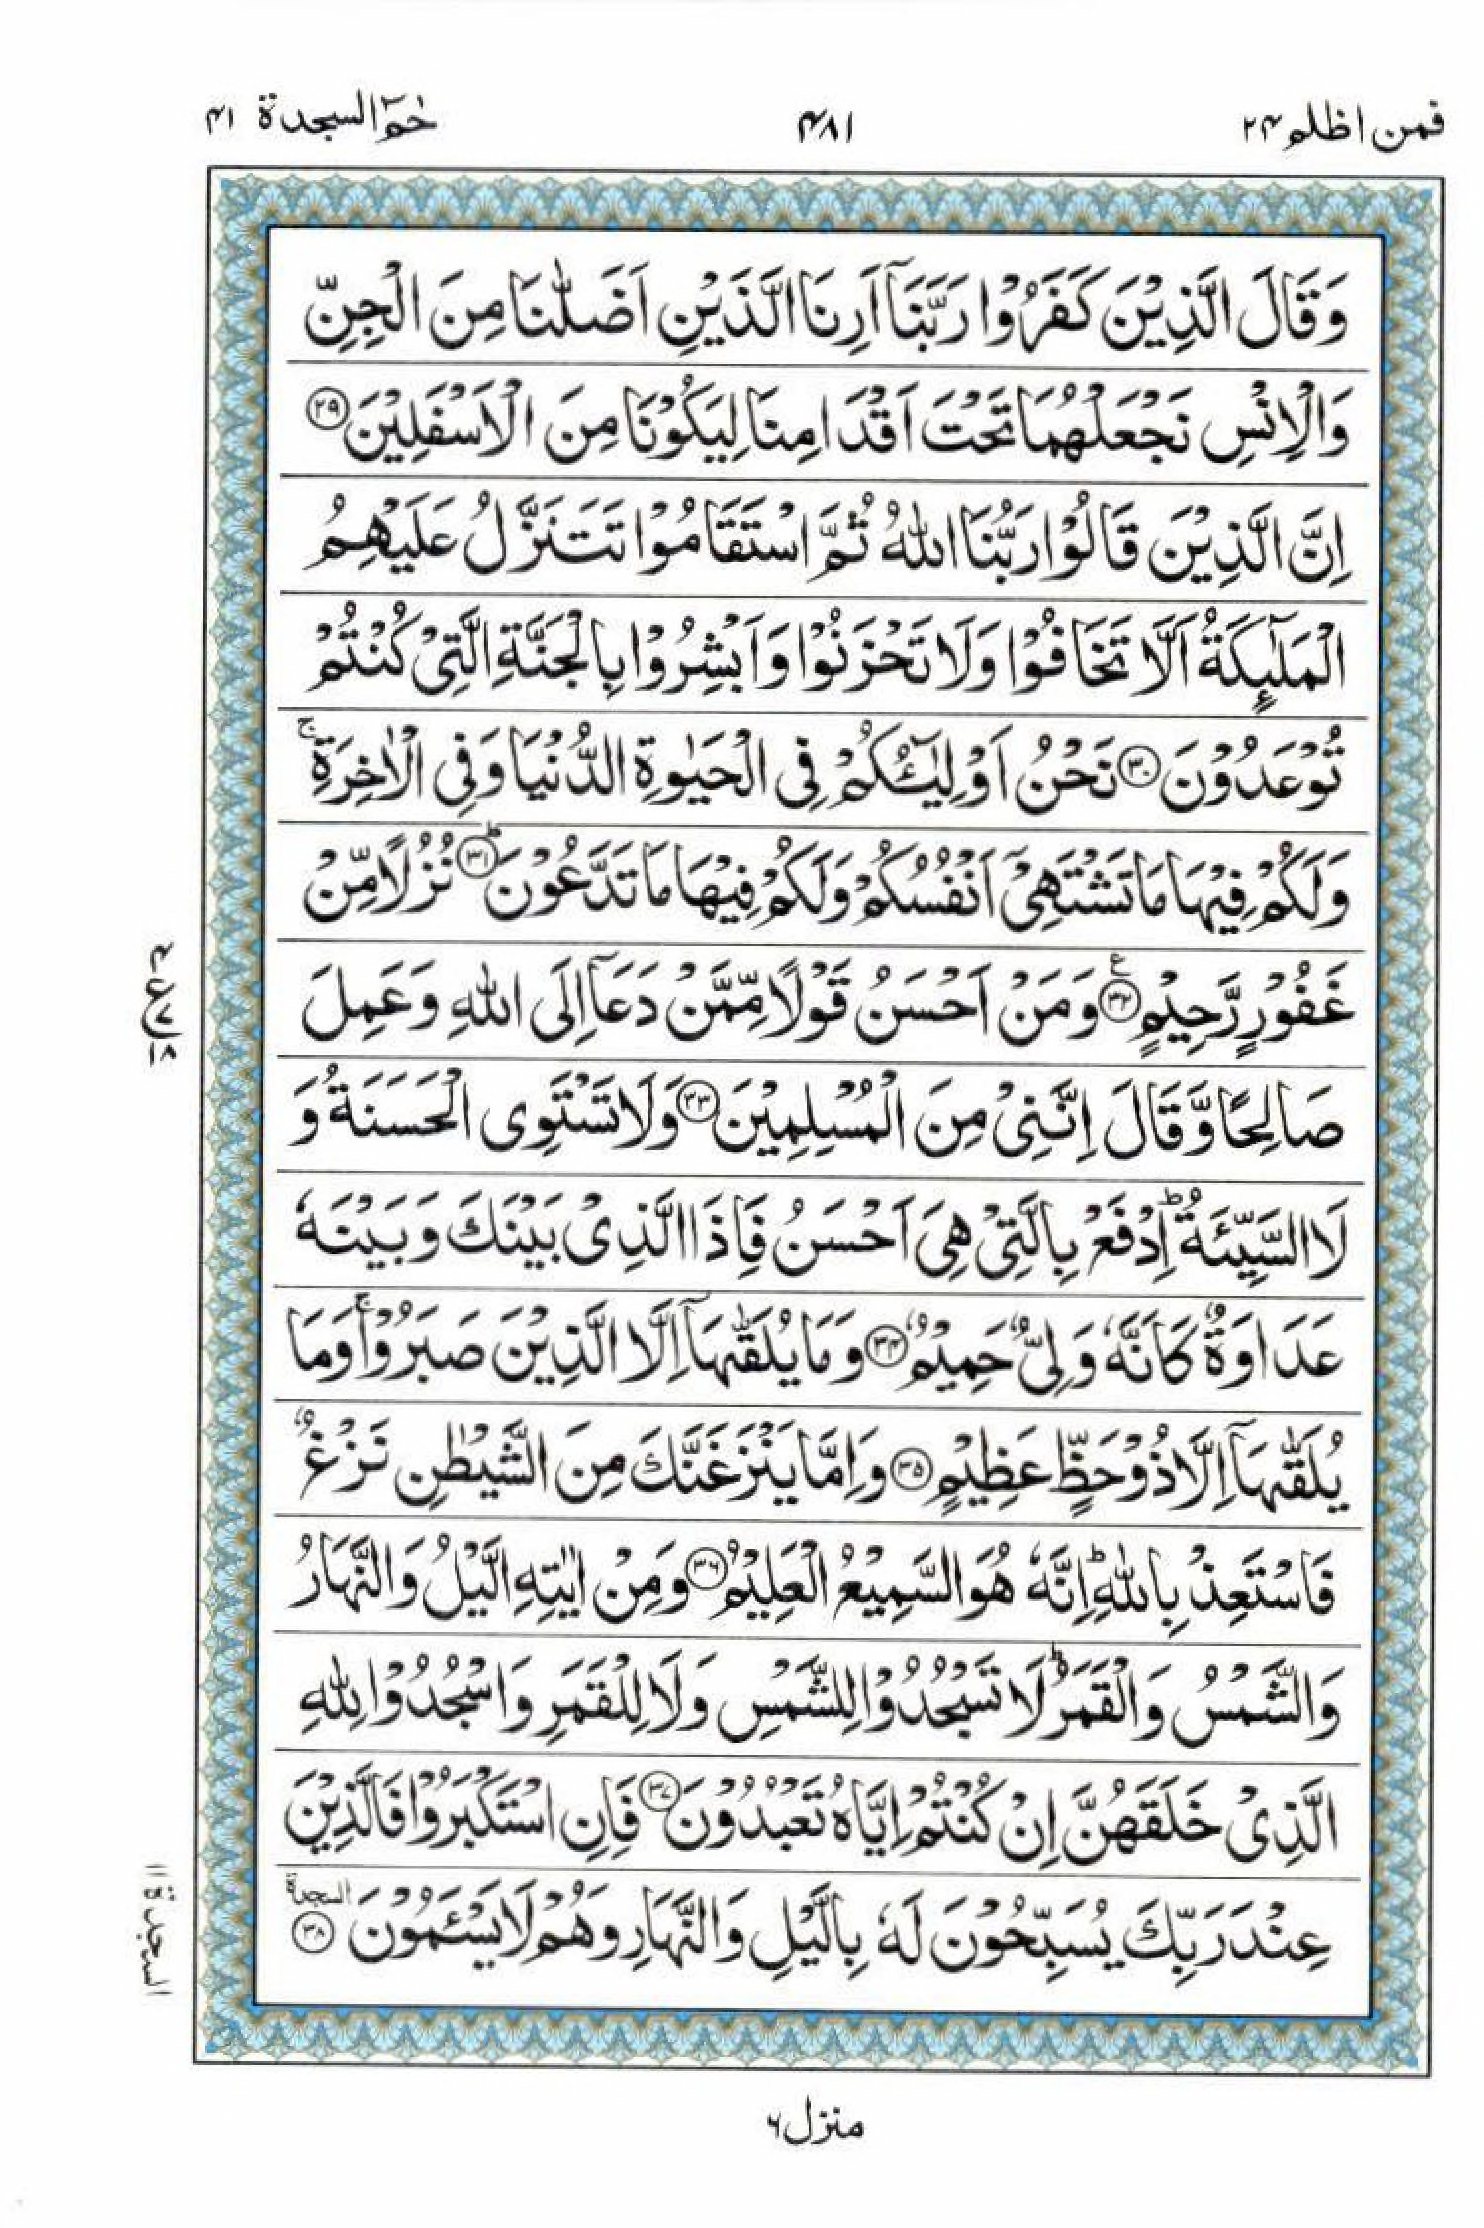 فمن اظلم ۲۴
۴۸۱
حٰمٓ السجدة ۴۱
وَقَالَ الَّذِیْنَ كَفَرُوْا رَبَّنَاۤ اَرِنَا الَّذَیْنِ اَضَلّٰنَا مِنَ الْجِنِّ
وَالْاِنْسِ نَجْعَلْهُمَا تَحْتَ اَقْدَامِنَا لِیَكُوْنَا مِنَ الْاَسْفَلِیْنَ ۲۹
اِنَّ الَّذِیْنَ قَالُوْا رَبُّنَا اللّٰهُ ثُمَّ اسْتَقَامُوْا تَتَنَزَّلُ عَلَیْهِمُ
الْمَلٰٓىِٕكَةُ اَلَّا تَخَافُوْا وَلَا تَحْزَنُوْا وَاَبْشِرُوْا بِالْجَنَّةِ الَّتِیْ كُنْتُمْ
تُوْعَدُوْنَ ۳۰ نَحْنُ اَوْلِیٰٓـُٔكُمْ فِی الْحَیٰوةِ الدُّنْیَا وَفِی الْاٰخِرَةِ ۚ
وَلَكُمْ فِیْهَا مَا تَشْتَهِیْۤ اَنْفُسُكُمْ وَلَكُمْ فِیْهَا مَا تَدَّعُوْنَ ؕ ۳۱ نُزُلًا مِّنْ
غَفُوْرٍ رَّحِیْمٍ ۳۲ ع وَمَنْ اَحْسَنُ قَوْلًا مِّمَّنْ دَعَاۤ اِلَی اللّٰهِ وَعَمِلَ
صَالِحًا وَّقَالَ اِنَّنِیْ مِنَ الْمُسْلِمِیْنَ ۳۳ وَلَا تَسْتَوِی الْحَسَنَةُ وَ
لَا السَّیِّئَةُ ؕ اِدْفَعْ بِالَّتِیْ هِیَ اَحْسَنُ فَاِذَا الَّذِیْ بَیْنَكَ وَبَیْنَهٗ
عَدَاوَةٌ كَاَنَّهٗ وَلِیٌّ حَمِیْمٌ ۳۴ وَمَا یُلَقّٰىهَاۤ اِلَّا الَّذِیْنَ صَبَرُوْا ۚ وَمَا
یُلَقّٰىهَاۤ اِلَّا ذُوْ حَظٍّ عَظِیْمٍ ۳۵ وَاِمَّا یَنْزَغَنَّكَ مِنَ الشَّیْطٰنِ نَزْغٌ
فَاسْتَعِذْ بِاللّٰهِ ؕ اِنَّهٗ هُوَ السَّمِیْعُ الْعَلِیْمُ ۳۶ وَمِنْ اٰیٰتِهِ الَّیْلُ وَالنَّهَارُ
وَالشَّمْسُ وَالْقَمَرُ ؕ لَا تَسْجُدُوْا لِلشَّمْسِ وَلَا لِلْقَمَرِ وَاسْجُدُوْا لِلّٰهِ
الَّذِیْ خَلَقَهُنَّ اِنْ كُنْتُمْ اِیَّاهُ تَعْبُدُوْنَ ۳۷ فَاِنِ اسْتَكْبَرُوْا فَالَّذِیْنَ
عِنْدَ رَبِّكَ یُسَبِّحُوْنَ لَهٗ بِالَّیْلِ وَالنَّهَارِ وَهُمْ لَا یَسْئَمُوْنَ ۳۸ السجدة
ع ۷ ۱۸
السجدة ۱۱
منزل ۶